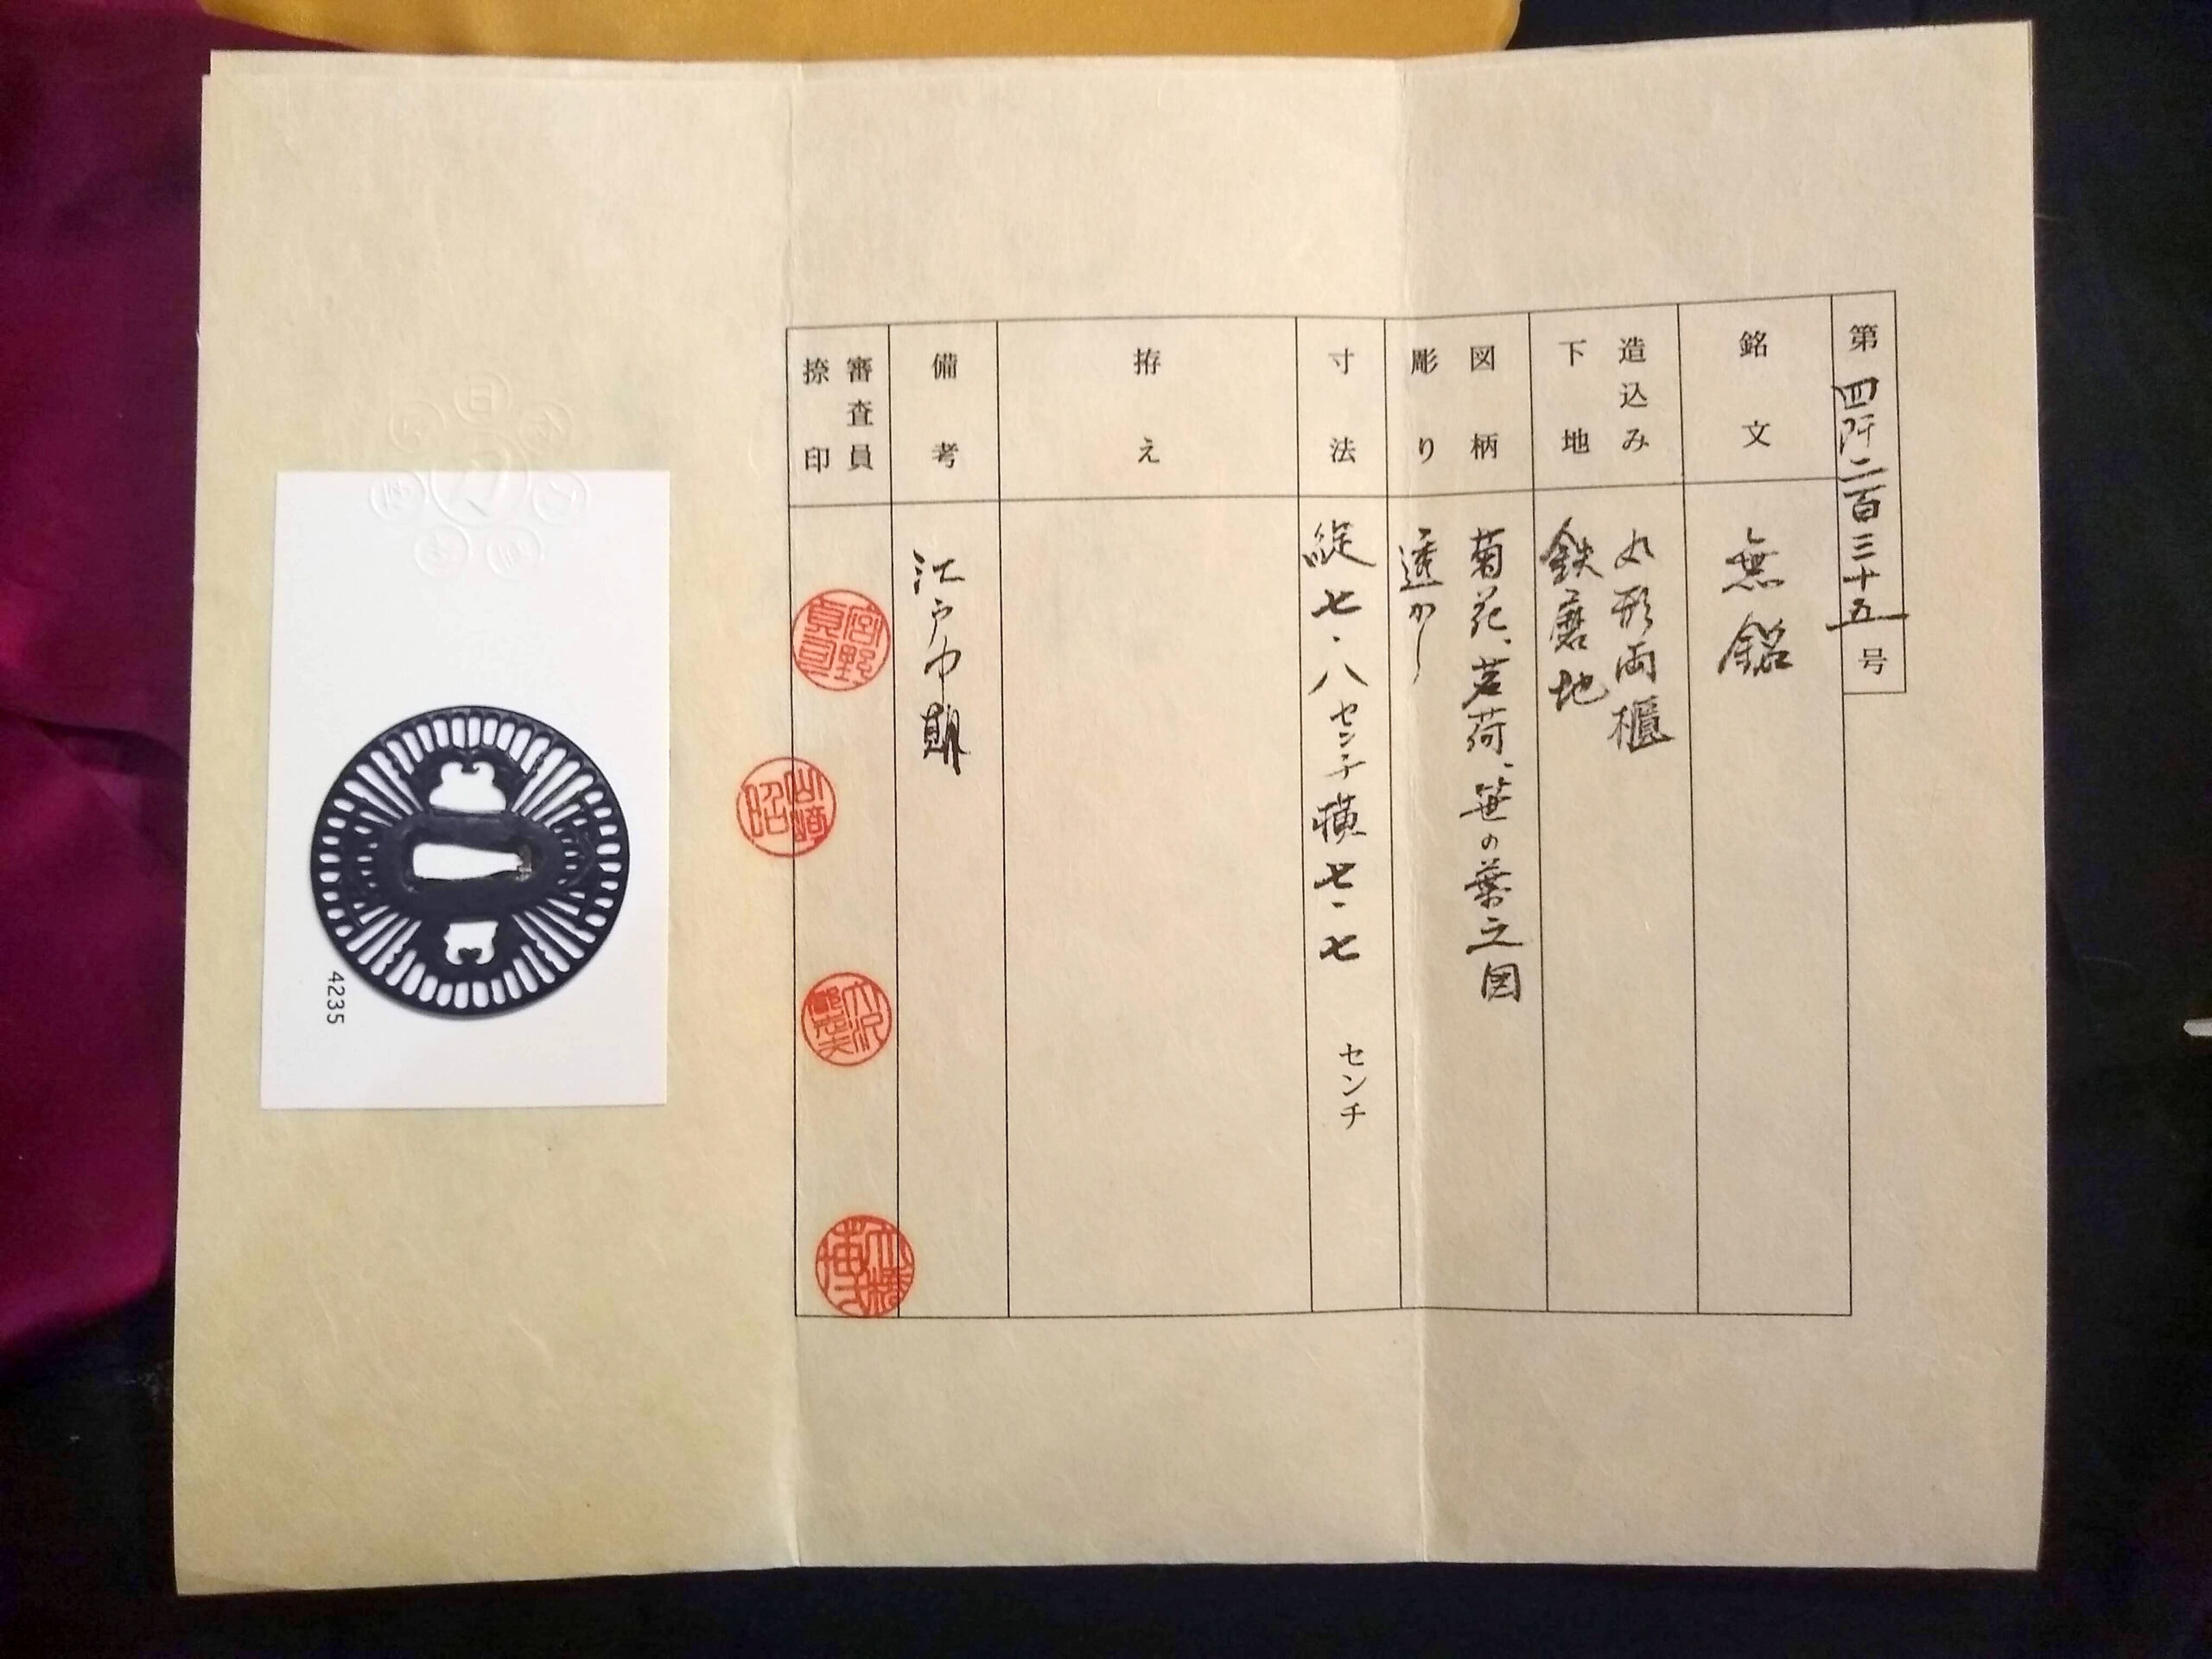 第四阡二百三十五号
銘文
無銘
造込み
下地
丸形両櫃
鉄磨地
図柄
彫り
菊花、茗荷、笹の葉之図
透かし
寸法
縦七・八センチ横七・七 センチ
拵え
備考
江戸中期
審査員
捺印
山崎
昭
4235